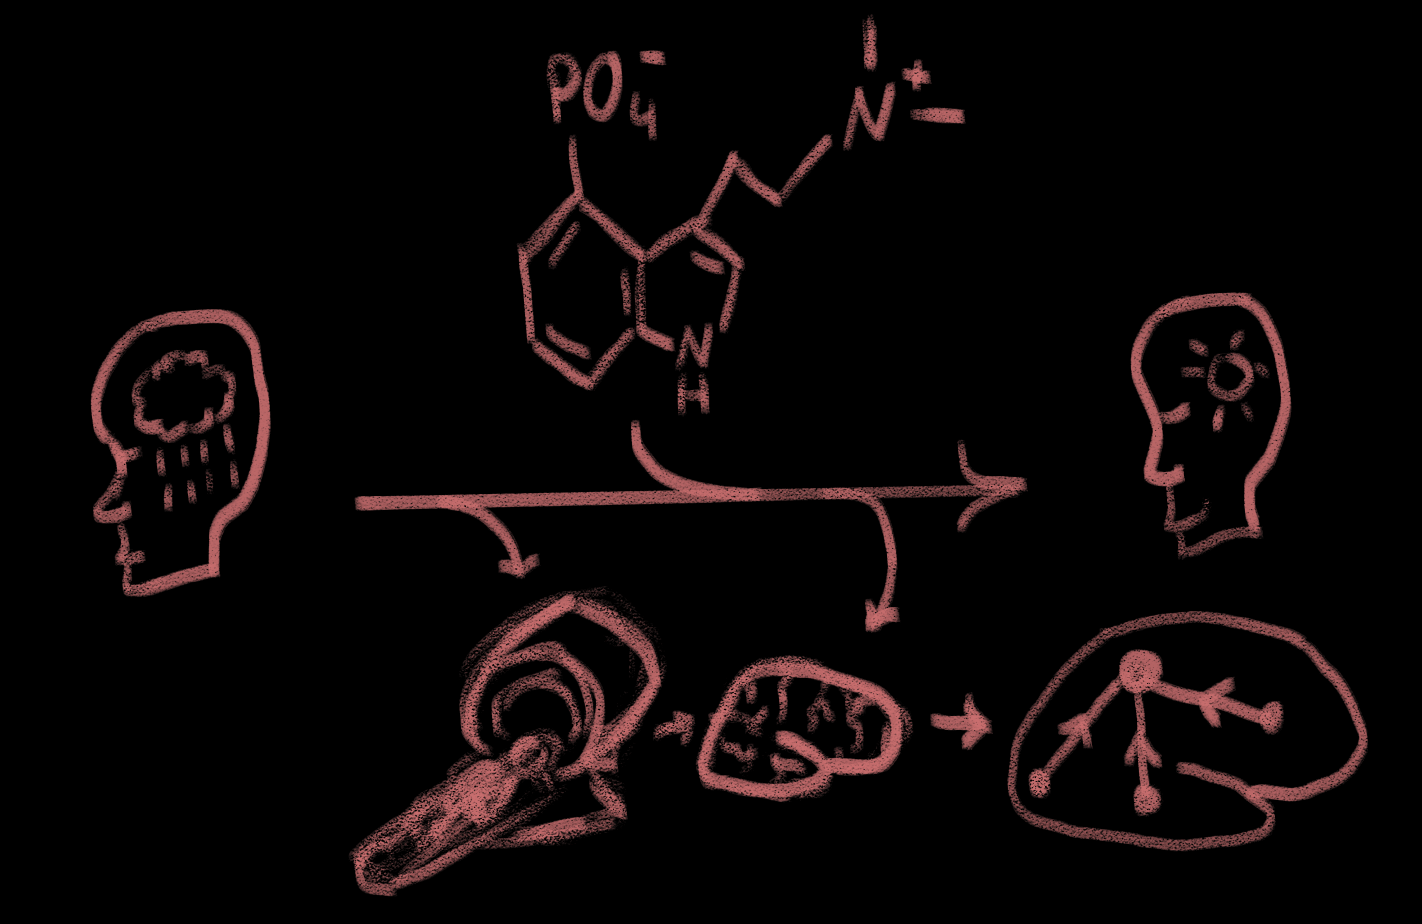 PO₄⁻
N⁺
N
H